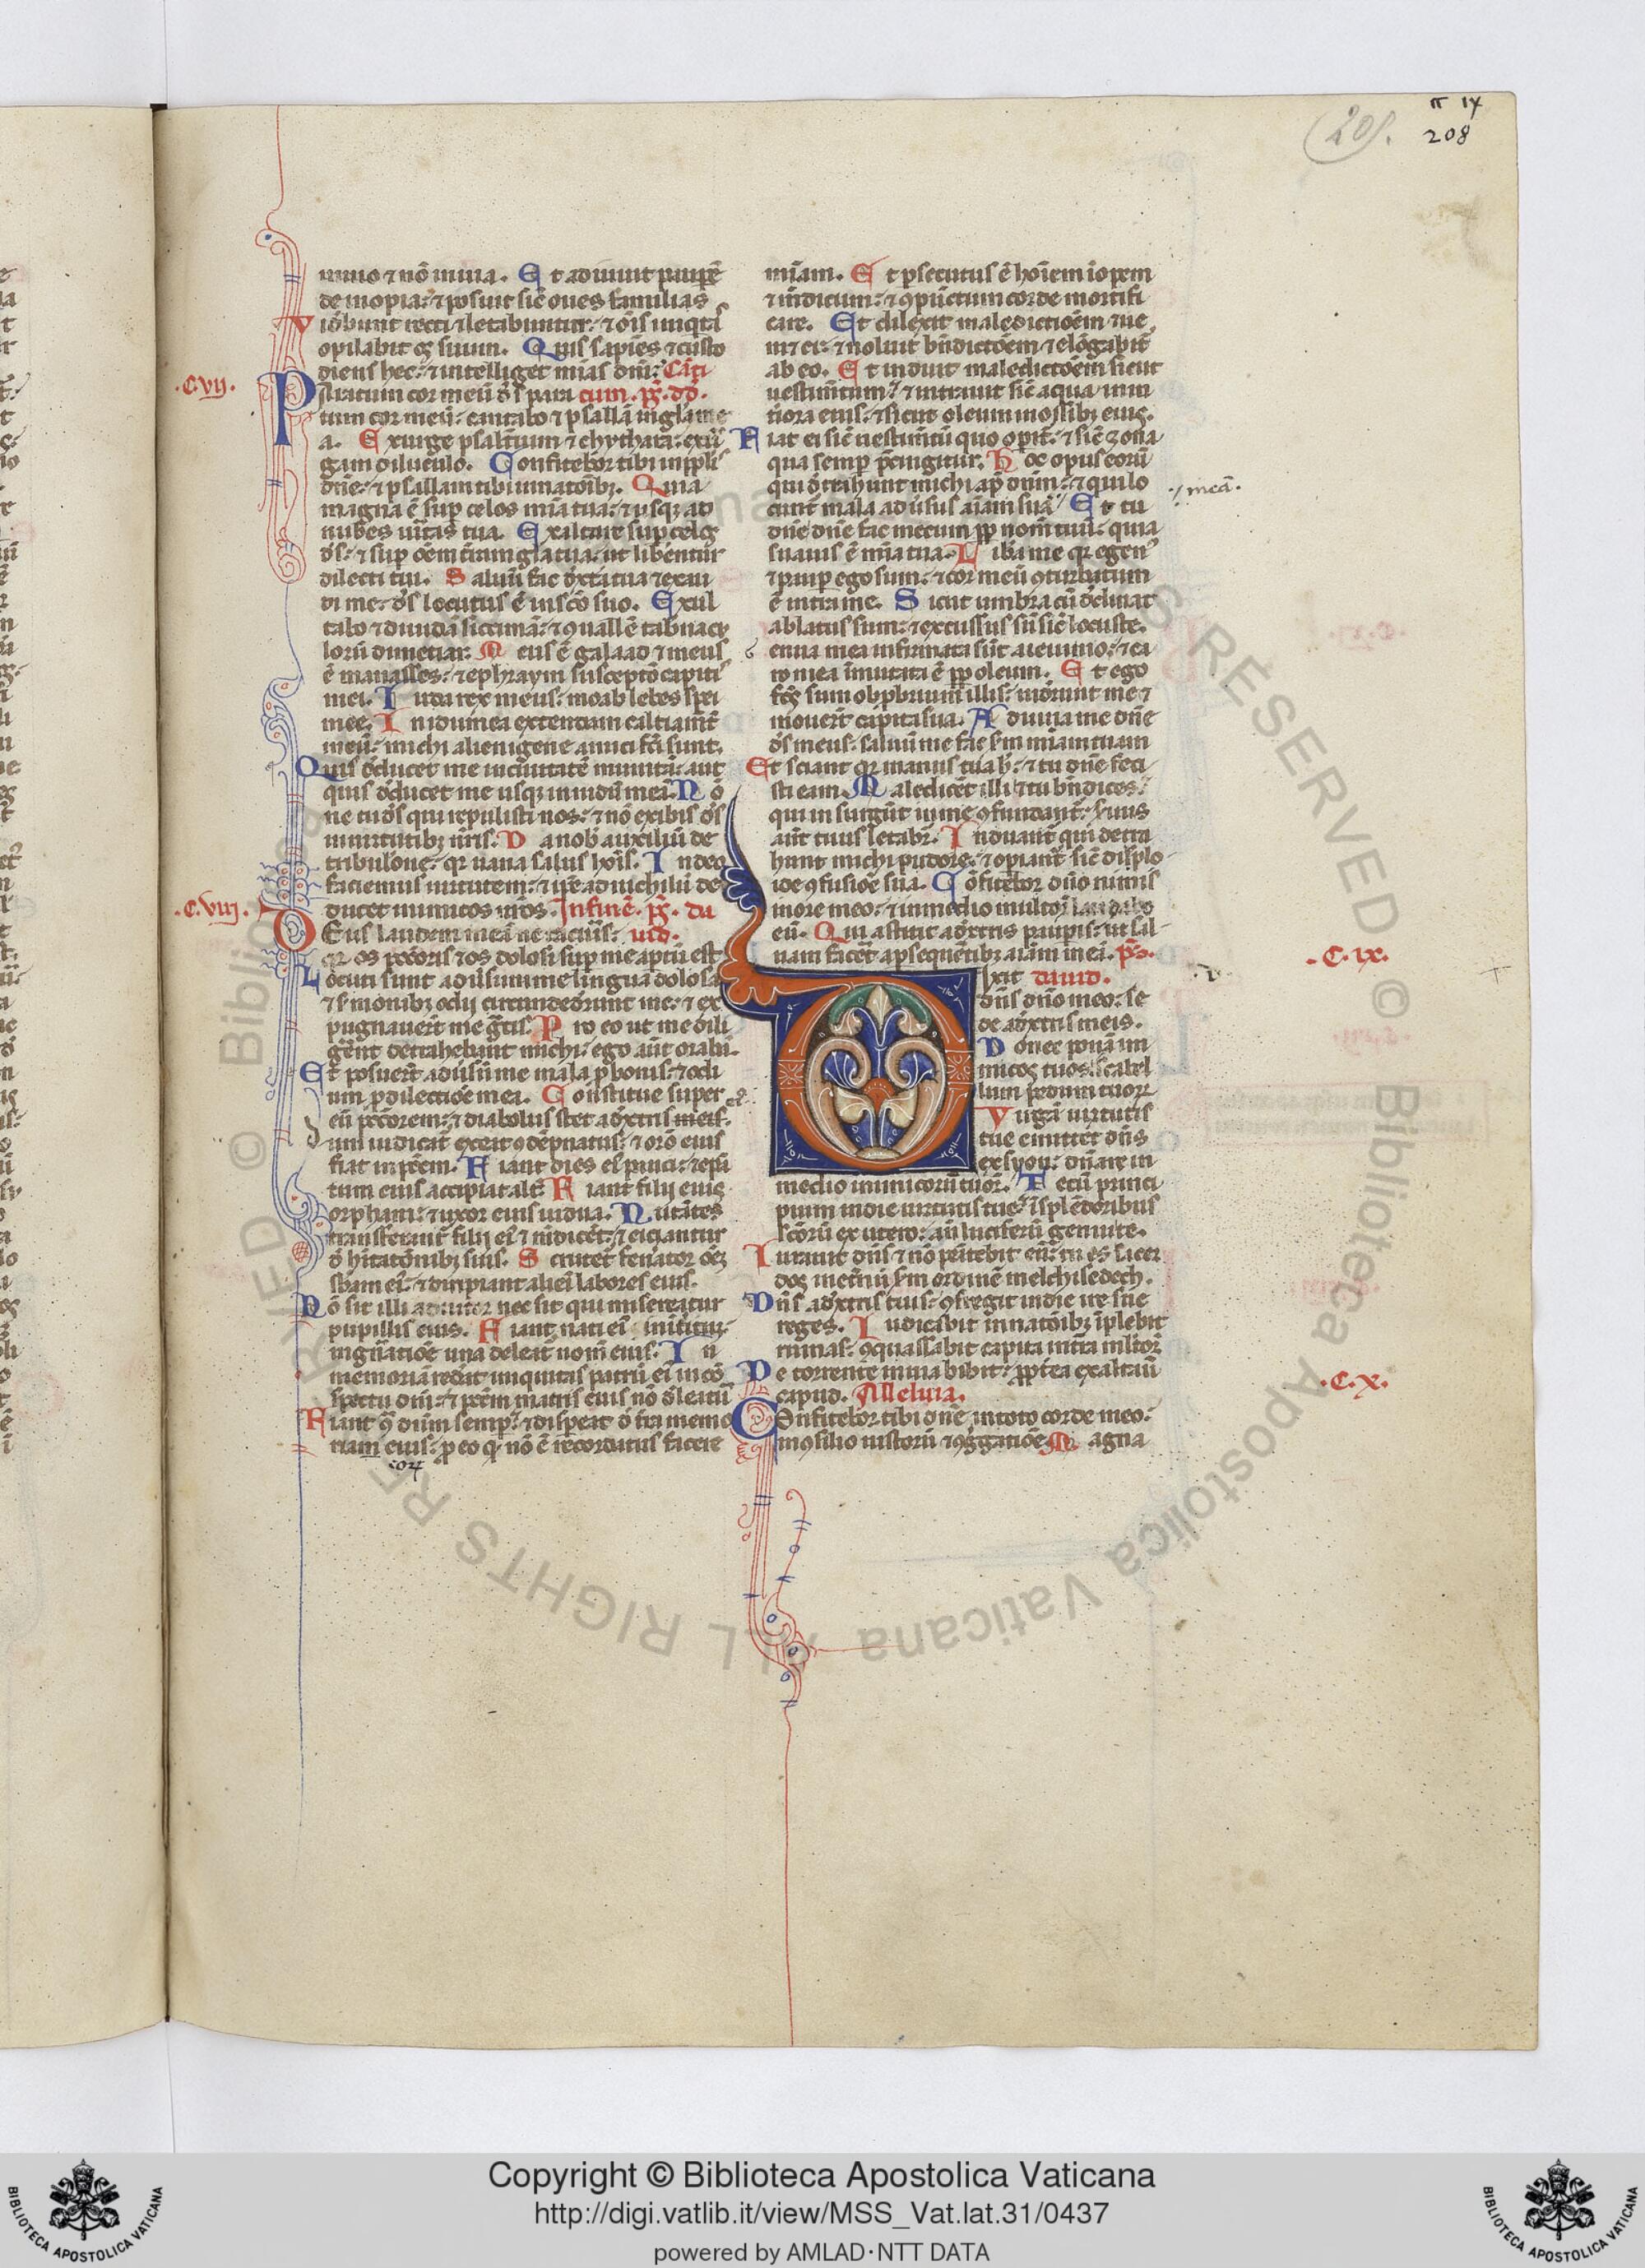 (201.
208
uinuo ⁊ nō inuia. Et adiuuit paupē
de inopia: ⁊ posuit sic̄ oues familias
Vidb̄unt recti ⁊ letabuntur: ⁊ oīs iniqtā
opilabit os suum. Quis sapiēs ⁊ custo
diens hec: ⁊ intelliget mīas dnī: Cāti
.C.vij.
Paratum cor meū ds̄ para cum. ps̄. dd̄.
tum cor meū: cantabo ⁊ psallā in gl̄a me
a. Exurge psaltium ⁊ chythara: exur
gam diluculo. Confitebor tibi in ppli
dn̄e: ⁊ psallam tibi in natoībꝫ. Quia
magna ē sup celos mīa tua: ⁊ usqꝫ ad
nubes uitas tua. Exaltare sup celos
ds̄: ⁊ sup oēm tram gl̄a tua: ut libentur
dilecti tui. Saluū fac dextra tua ⁊ exau
di me: ds̄ locutus ē in scō suo. Exul
tabo ⁊ diuidā siccimā: ⁊ ꝯuallē tabnacu
lorū dimetiar: Meus ē galaad ⁊ meus
ē manasses: ⁊ ephraym susceptō capiti
mei. Iuda rex meus: moab lebes spei
mee. In idumea extendam caltiamt̄
meū: michi alienigene amici fcī sunt.
Quis ddūcet me in ciuitatē munitā: aut
quis ddūcet me usqꝫ in idumeā. Nō
ne tu ds̄ qui repulisti nos: ⁊ nō exibis ds̄
in uirtutibꝫ nr̄is. Da nob̄ auxiliū de
tribulōne: qꝛ uana salus hoīs. In deo
faciemus uirtutem: ⁊ ipse ad nichilū de
.C.viij.
ducet inimicos nr̄os. In finē. ps̄. da
Deus laudem meā ne tacuis: uid.
qꝛ os peccoris ⁊ os dolosi sup me aptū est
Locuti sunt adūsum me lingua dolosa
⁊ smonibꝫ odij circundedrunt me: ⁊ ex
pugnauert me gtīs. Pro eo ut me dili
gerent detrahebant michi: ego aut̄ orabā.
Et posuert adūsū me mala pro bonis: ⁊ odi
um pro dilectiōe mea. Constitue super
eū petōrem: ⁊ diabolus stet a dextris meis.
Cum iudicat exeat ꝯdēpnatus: ⁊ orō eius
fiat in petm̄. Fiant dies eī pauci: ⁊ epū
tum eius accipiat alt̄. Fiant filij eius
orphani: ⁊ uxor eius uidua. Nutātes
transferant̄ filij eī ⁊ mdicet̄: ⁊ eiciantur
d hītatōnibꝫ suis. Scrutet̄ fenator oēꝫ
sbam eī: ⁊ diripiant alieī labores eius.
Nō sit illi adiutor nec sit qui misereatur
pupillis eius. Fiant nati eī in interitū:
in gnatiōe una deleat̄ nom̄ eius. In
memoriā redeat iniquitas patrū eī in cō
spectu dnī: ⁊ petm̄ matris eius nō dleatū
Fiant ꝯ dnm̄ semp: ⁊ dispeat d tra memo
riam eius: pro eo qꝛ nō ē recordatus facere
coꝝ
mīam. Et psecutus ē hoīem iopem
⁊ mdicum: ⁊ ꝯpūctum corde mortifi
care. Et dilexit maledictioēm ⁊ ue
niet ei: ⁊ noluit bn̄dictōem ⁊ elōgabit̄
ab eo. Et induit maledictōem sicut
uestimtum: ⁊ intrauit sic̄ aqua in in
tiora eius: ⁊ sicut oleum in ossibꝫ eius.
Fiat ei sic̄ uestimtū quo opit̄: ⁊ sic̄ zona
qua semp pcingitur. Hoc opus eorū
qui dtrahunt michi ap dnm̄: ⁊ qui lo
⸓ meā.
cunt̄ mala adūsus aīam suā/ Et tu
dn̄e dn̄e fac mecum pp nom̄ tuū: quia
suauis ē mīa tua. Liba me qꝛ egen
⁊ paup ego sum: ⁊ cor meū ꝯturbatum
ē intra me. Sicut umbra cū dclinat
ablatus sum: ⁊ excussus sū sic̄ locuste.
Genua mea infirmata sūt a ieiunio: ⁊ ca
ro mea īmutata ē pp oleum. Et ego
fcs̄ sum obprbrium illis: uidrunt me ⁊
mouert̄ capita sua. Adiuua me dn̄e
ds̄ meus: saluū me fac sm̄ mīam tuam
Et sciant qꝛ manus tua h̄: ⁊ tu dn̄e feci
sti eam. Maledicet̄ illi ⁊ tu bn̄dices:
qui insurgūt in me ꝯfundant̄: seruus
aut̄ tuus letabr̄. Induant̄ qui detra
hunt michi pudore: ⁊ opiant̄ sic̄ diplo
ide ꝯfusioē sua. Cōfitebor dn̄o nimis
in ore meo: ⁊ in medio multoꝝ laudabo
eū. Qui astitit a dextris paupis: ut sal
uam facet̄ a psequētibꝫ aīam meā. ps̄.
.C.ix.
Dixit dauid.
dn̄s dn̄o meo: se
de a dextris meis.
Donec ponā ini
micos tuos: scabel
lum pedum tuoꝝ
Virgā uirtutis
tue emittet dn̄s
ex syon: dnāre in
medio inimicorū tuoꝝ. Tecū princi
pium in die uirtutis tue: ī splēdoribus
scōrū ex utero: an̄ luciferū genui te.
Iurauit dn̄s ⁊ nō penitebit eū: tu es sacer
dos in etnū sm̄ ordinē melchisedech.
Dn̄s a dextris tuis: ꝯfregit in die ire sue
reges. Iudicabit in natōibꝫ īplebit
ruinas: ꝯquassabit capita in tra multoꝝ
De torrente in uia bibit: pptea exaltauit
.C.x.
capud. Alleluia.
Confitebor tibi dn̄e in toto corde meo:
in ꝯsilio iustorū ⁊ ꝯggatioē. Magna
Copyright © Biblioteca Apostolica Vaticana
http://digi.vatlib.it/view/MSS_Vat.lat.31/0437
powered by AMLAD·NTT DATA
BIBLIOTECA APOSTOLICA VATICANA
BIBLIOTECA APOSTOLICA VATICANA